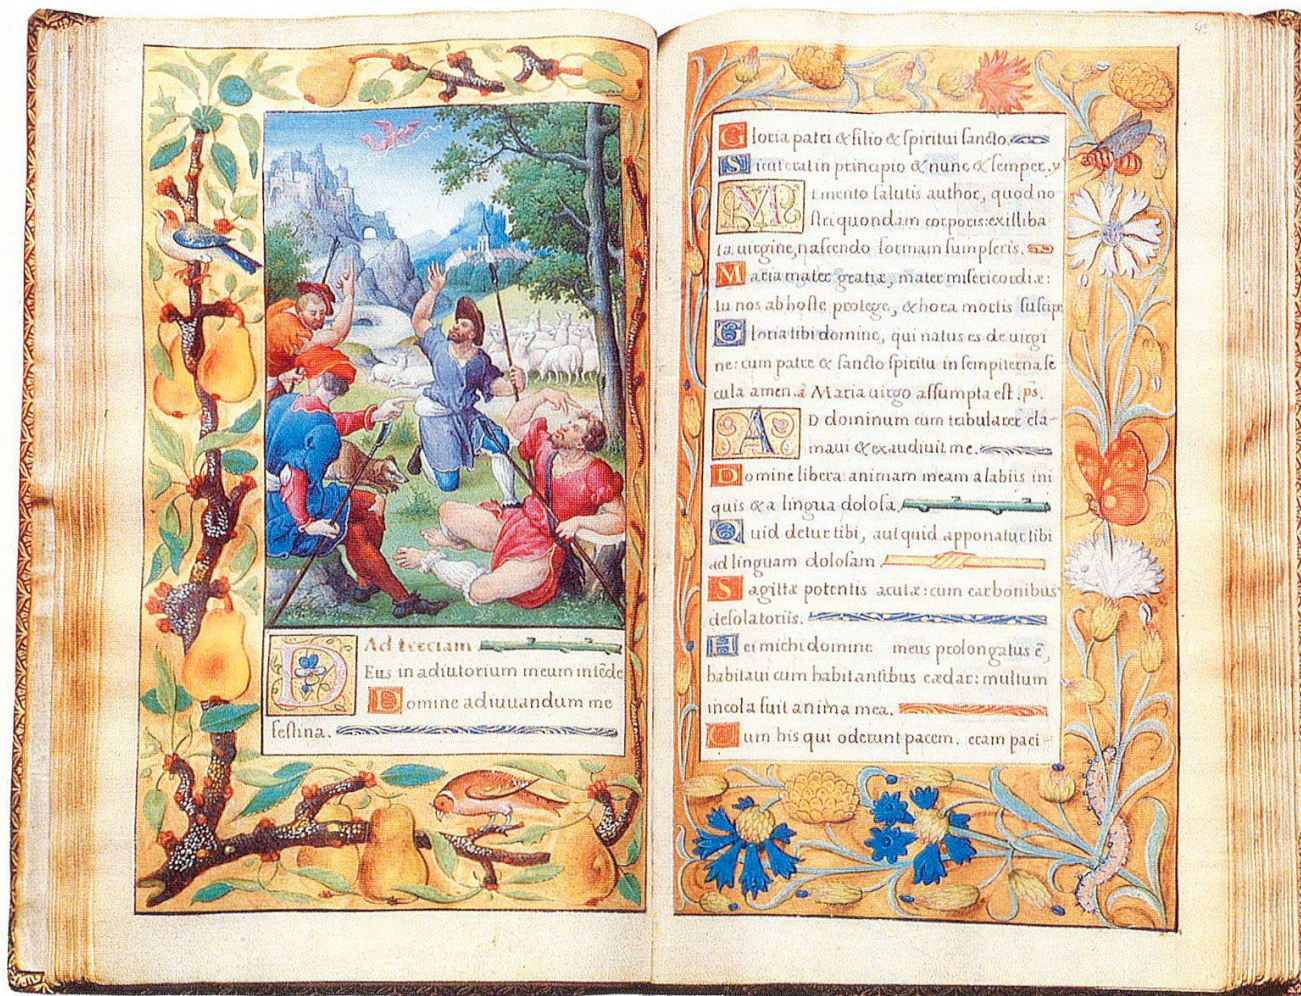 Ad terciam
Eus in adiutorium meum intēde
Domine adiuuandum me
festina.
45
Gloria patri & filio & spiritui sancto.
Sicut erat in principio & nunc & semper. y
MEmento salutis author, quod no
stri quondam corporis: ex illiba
ta uirgine, nascendo formam sumpseris.
Maria mater gratiæ, mater misericordiæ:
tu nos ab hoste protege, & hora mortis suscipe
Gloria tibi domine, qui natus es de uirgi
ne: cum patre & sancto spiritu in sempiterna se
cula amen. a Maria uirgo assumpta est. ps.
AD dominum cum tribularer cla-
maui & exaudiuit me.
Domine libera animam meam a labiis ini
quis & a lingua dolosa.
Quid detur tibi, aut quid apponatur tibi
ad linguam dolosam.
Sagittæ potentis acutæ: cum carbonibus
desolatoriis.
Hei michi domine meus prolongatus ē,
habitaui cum habitantibus cædar: multum
incola fuit anima mea.
Cum his qui oderunt pacem. eram paci-